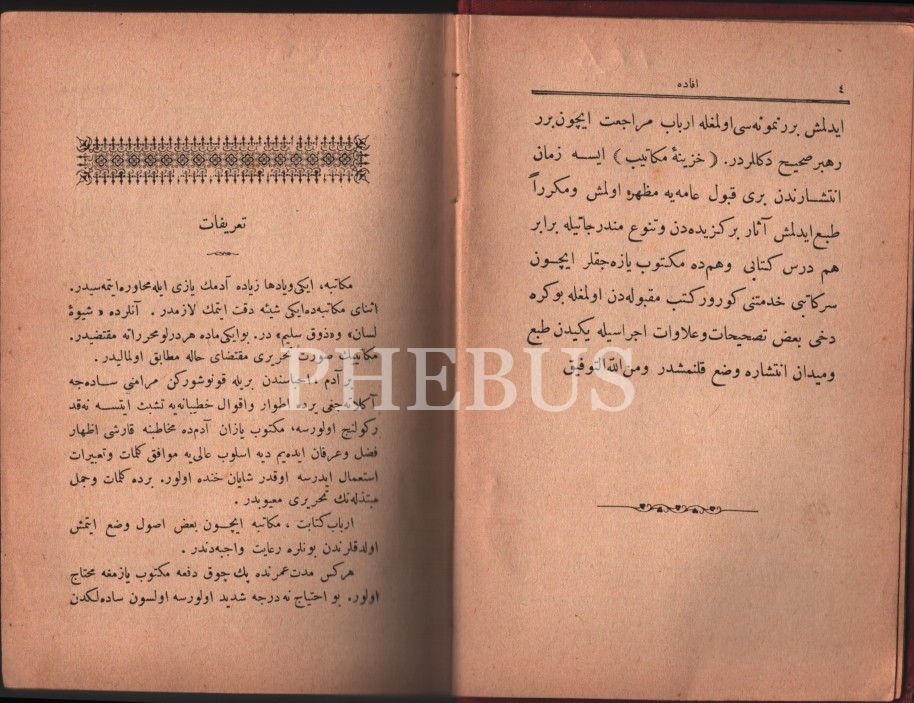 ٤
افاده
ایدلمش بررنمونه‌سی اولمغله ارباب مراجعت ایچون برر
رهبر صحیح دکللردر. (خزینۀ مکاتیب) ایسه زمان
انتشارندن بری قبول عامه‌یه مظهره اولمش ومکرراً
طبع ایدلمش آثار برکزیده‌دن وتنوع مندرجاتیله برابر
هم درس کتابی وهم‌ده مکتوب یازه‌جقلر ایچون
سرکاتبی خدمتنی کورور کتب مقبوله‌دن اولمغله بوکره
دخی بعض تصحیحات وعلاوات اجراسیله یکیدن طبع
ومیدان انتشاره وضع قلنمشدر ومن الله التوفیق
تعریفات
مکاتبه، ایکی ویادها زیاده آدمك یازی ایله محاوره ایتمه‌سیدر.
اثنای مکاتبه‌ده ایکی شیئه دقت ایتمك لازمدر. آنلرده «شیوۀ
لسان» و«ذوق سلیم» در. بوایکی ماده هردرلو محرراته مقتضیدر.
مکاتیبك صورت تحریری مقتضای حاله مطابق اولمالیدر.
بر آدم احباسندن بریله قونوشورکن مرامنی ساده‌جه
آکلاته‌جغی یرده اطوار واقوال خطیبانه‌یه تشبث ایتسه نه‌قدر
کولنج اولورسه، مکتوب یازان آدم‌ده مخاطبنه قارشی اظهار
فضل وعرفان ایده‌یم دیه اسلوب عالی‌یه موافق کلمات وتعبیرات
استعمال ایدرسه اوقدر شایان خنده اولور. برده کلمات وجمل
مبتذله‌نك تحریری معیوبدر.
ارباب کتابت، مکاتبه ایچون بعض اصول وضع ایتمش
اولدقلرندن بونلره رعایت واجبه‌دندر.
هرکس مدت عمرنده پك چوق دفعه مکتوب یازمغه محتاج
اولور. بو احتیاج نه درجه شدید اولورسه اولسون ساده‌لکدن
PHEBUS